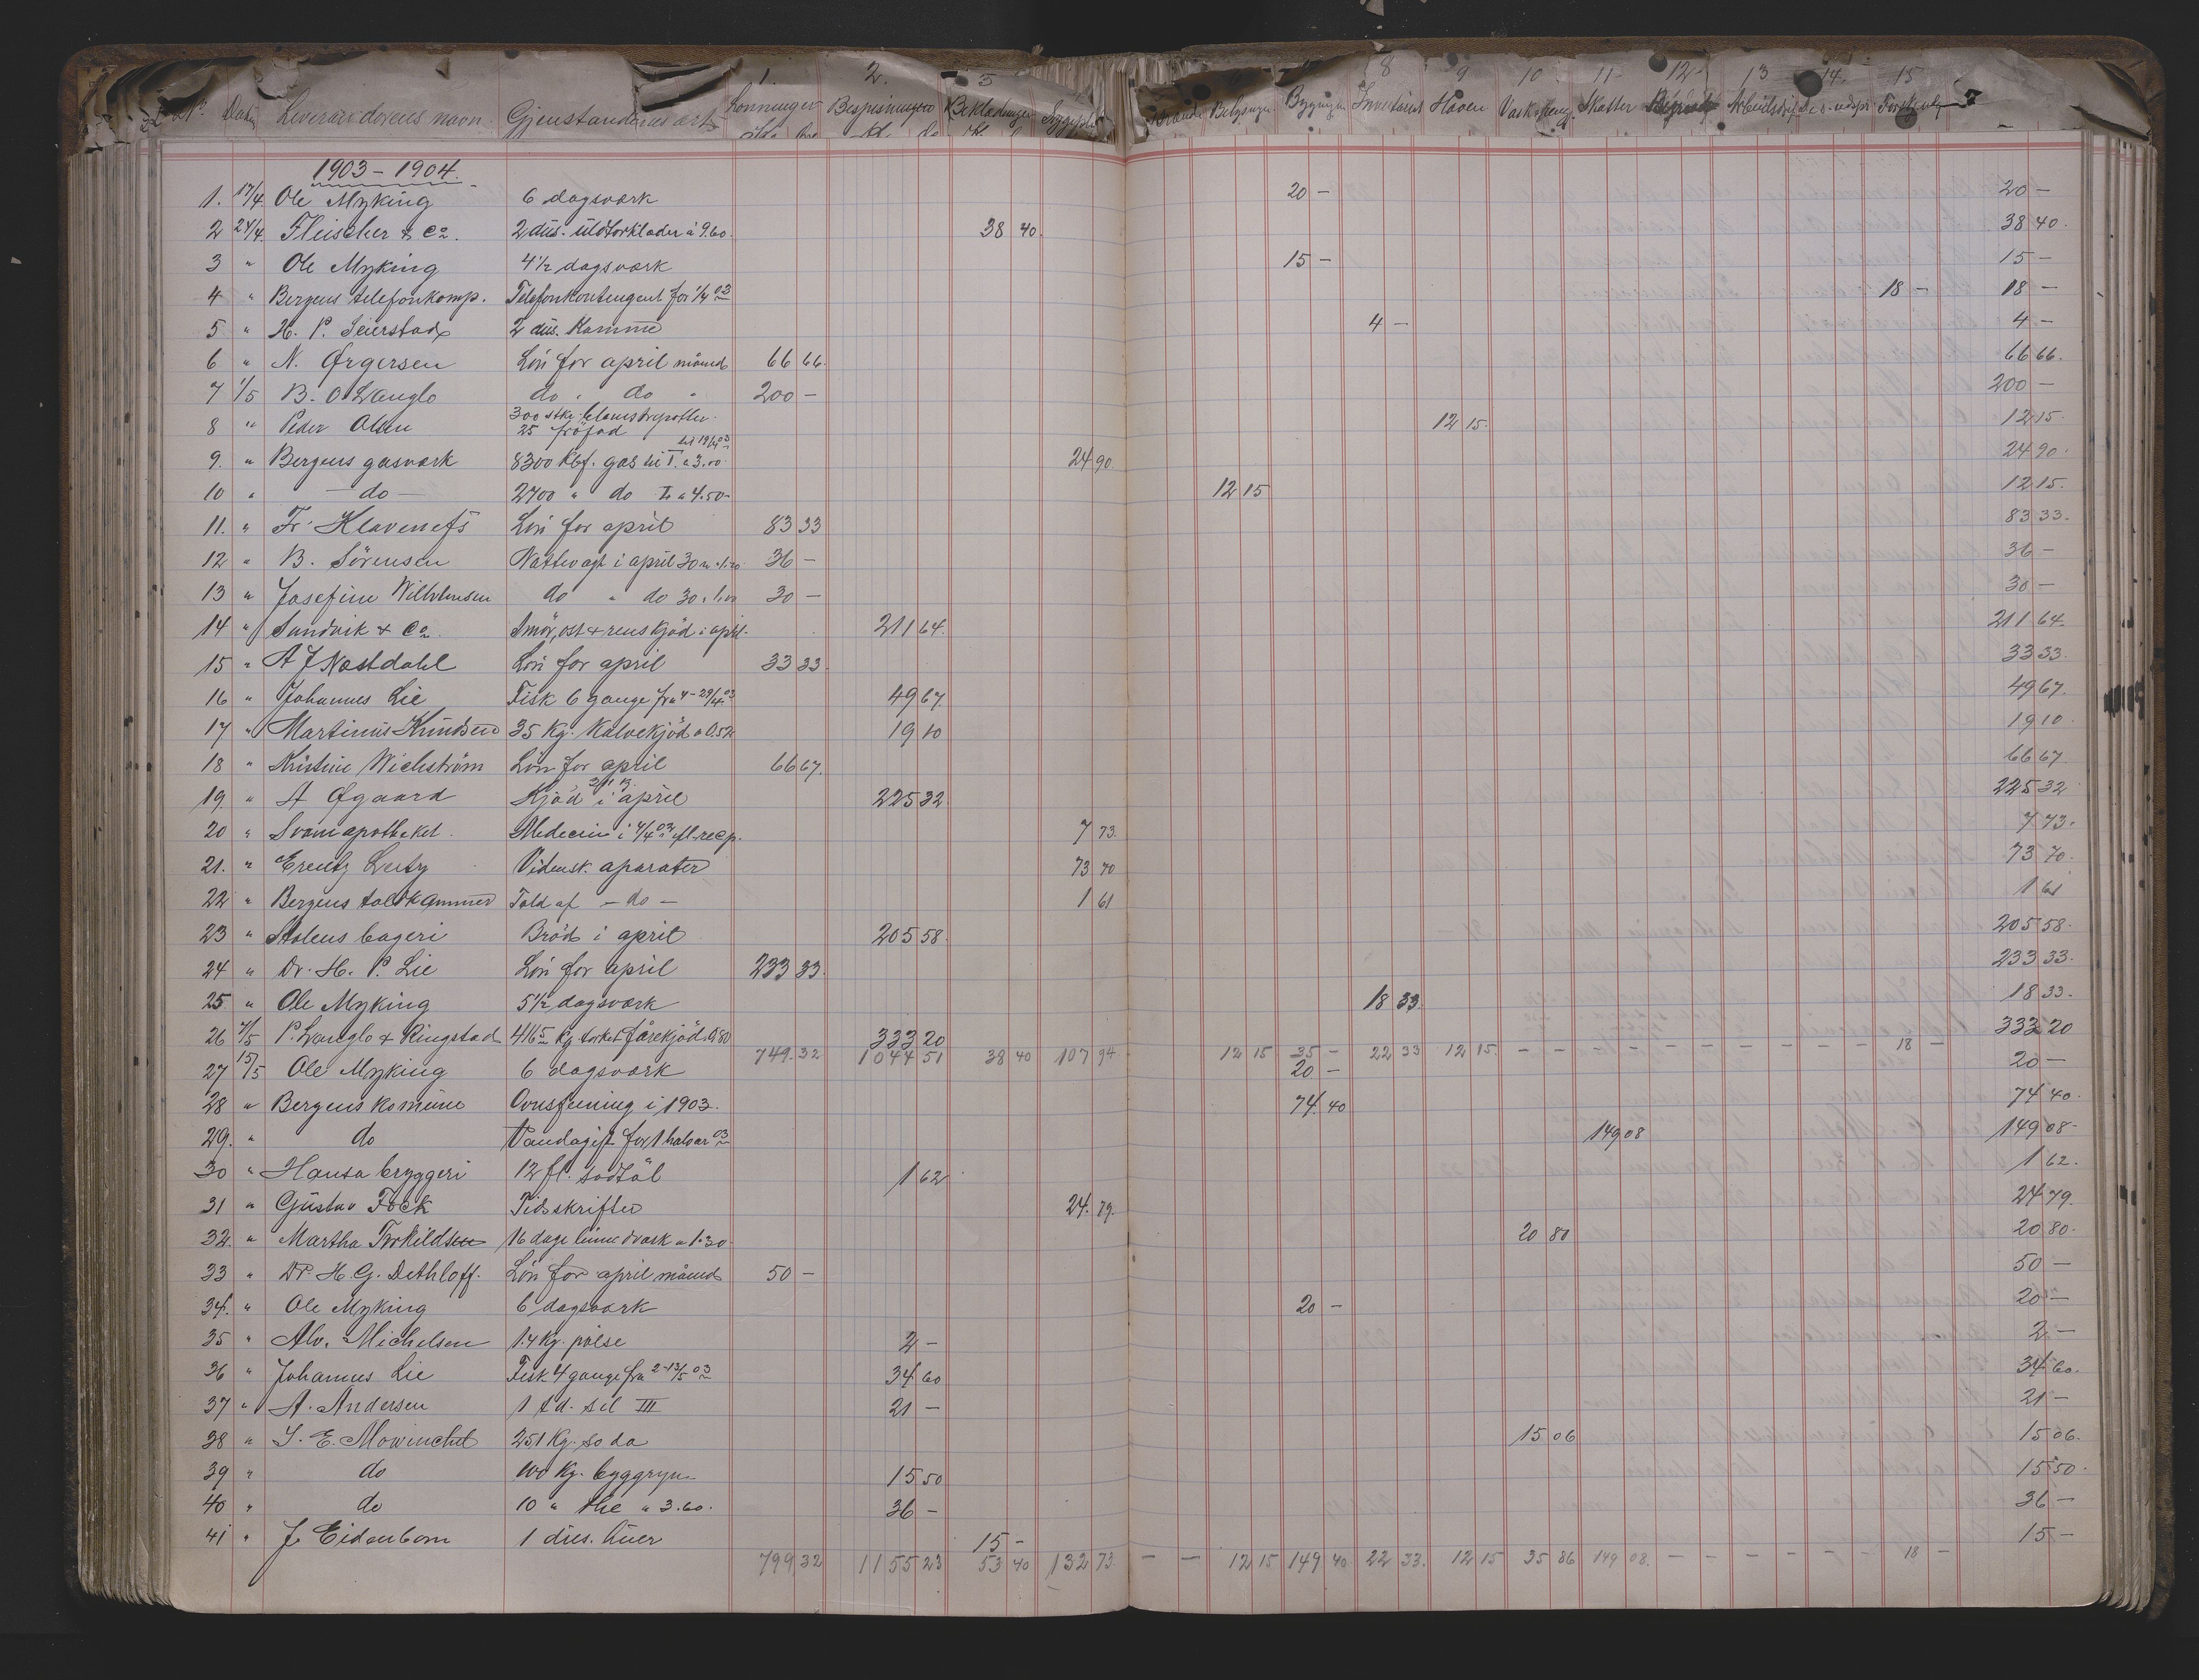 1. 2. 3 8 9 10 11 12 13 14. 15
Datum Leverandørens navn. Gjenstandens art Lønninger Bespisningen Beklædningen Sygepl. Brænde Belysningen Bygningen Inventariet Haven Vaskeneng. Skatter Arbeidsdrift
1903 – 1904.
1. 17/4 Ole Myking 6 dagsværk 20 – 20 –
2 24/4 Fleischer & Co. 2 dus. uldtorklæder à 9.60. 38 40. 38 40.
3 " Ole Myking 4½ dagsværk 15 – 15 –
4 " Bergens telefonkomp. Telefonkontingent for 1/4 03 18 – 18 –
5 " H. P. Seierstad 2 dus. Kamme 4 – 4 –
6 " N. Ørgersen Lön for april måned 66 66. 66 66.
7 1/5 B. O. Langlo do " do " 200 – 200 –
8 " Peder Olsen 300 stkr. blomsterpotter. 25 fröfad 12 15. 12 15.
9. " Bergens gasværk 8300 Kbf. gas til I. à 3.00 til 19/4 03 24 90 24 90.
10 " – do – 2700 " do I à 4.50 12 15 12 15.
11. " Fr. Klaveness Lön for april 83 33 83 33.
12 " B. Sörensen Nattevagt i april 30 n. à 1.20 36 – 36 –
13 " Josefine Wilhelmsen do " do 30 à 1.00 30 – 30 –
14 " Sundvik & Co. Smör, ost & rens kjöd i april. 211 64. 211 64.
15 " A J Næstdahl Lön for april 33 33. 33 33.
16 " Johannes Lie Fisk 6 gange fra 4–29/4 03 49 67. 49 67.
17 " Martinus Knudsen 35 Kg. Kalvekjöd à 0.54 19 10 19 10.
18 " Kristine Wichström Lön for april 66 67. 66 67
19. " A Øgaard Kjöd i april 225 32. 225 32
20 " Svaneapotheket. Medecin i 4/4 03 efl. recp. 7 73. 7 73.
21. " Erentz Leitz Vidensk. aparater 73 70 73 70.
22 " Bergens toldkammer Told af – do – 1 61 1 61
23 " Stolens bageri Bröd i april 205 58. 205 58.
24 " Dr. H. P. Lie Lön for april 233 33. 233 33.
25. " Ole Myking 5½ dagsværk 18 33. 18 33.
26 4/5 P. Langlo & Ringstad 416 5 Kg. törket fårekjöd à 0.80 333 20 333 20
749.32 1044 51 38 40 107 94 12 15 35 – 22 33 12 15. – – – – – – – – – – 18 –
27 15/5 Ole Myking 6 dagsværk 20 – 20 –
28 " Bergens komune Ovnsfeining i 1903. 74 40 74 40.
29. " do Vandagift for 1 halvaar 03 149 08 149 08 –
30 " Hansa bryggeri 12 fl. sødtöl 1 62 1 62.
31 " Gustav Fock Tidsskrifter 24. 79. 24 79.
32. " Martha Torkildsen 16 dage linned vask à 1.30. 20 80 20 80.
33 " Dr. H. G. Dethloff. Lön for april måned 50 – 50 –
34. " Ole Myking 6 dagsværk 20 – 20 –
35 " Alv. Michelsen 1.4 Kg. pölse 2 – 2 –
36 " Johannes Lie Fisk 4 gange fra 2–13/5 03 34 60 34 60.
37 " A. Andersen 1 td. sil III 21 – 21 –
38 " S. E. Mowinckel 251 Kg. soda 15 06 15 06.
39 " do 100 Kg. byggryn 15 50 15 50.
40 " do 10 " the à 3.60. 36 – 36 –
41 " J. Eidenbom 1 dus. huer 15 – 15 –
799 32 1155 23 53 40 132 73. – – 12 15 149 40 22 33. 12 15 35 86 149 08. – – – – – – 18 –